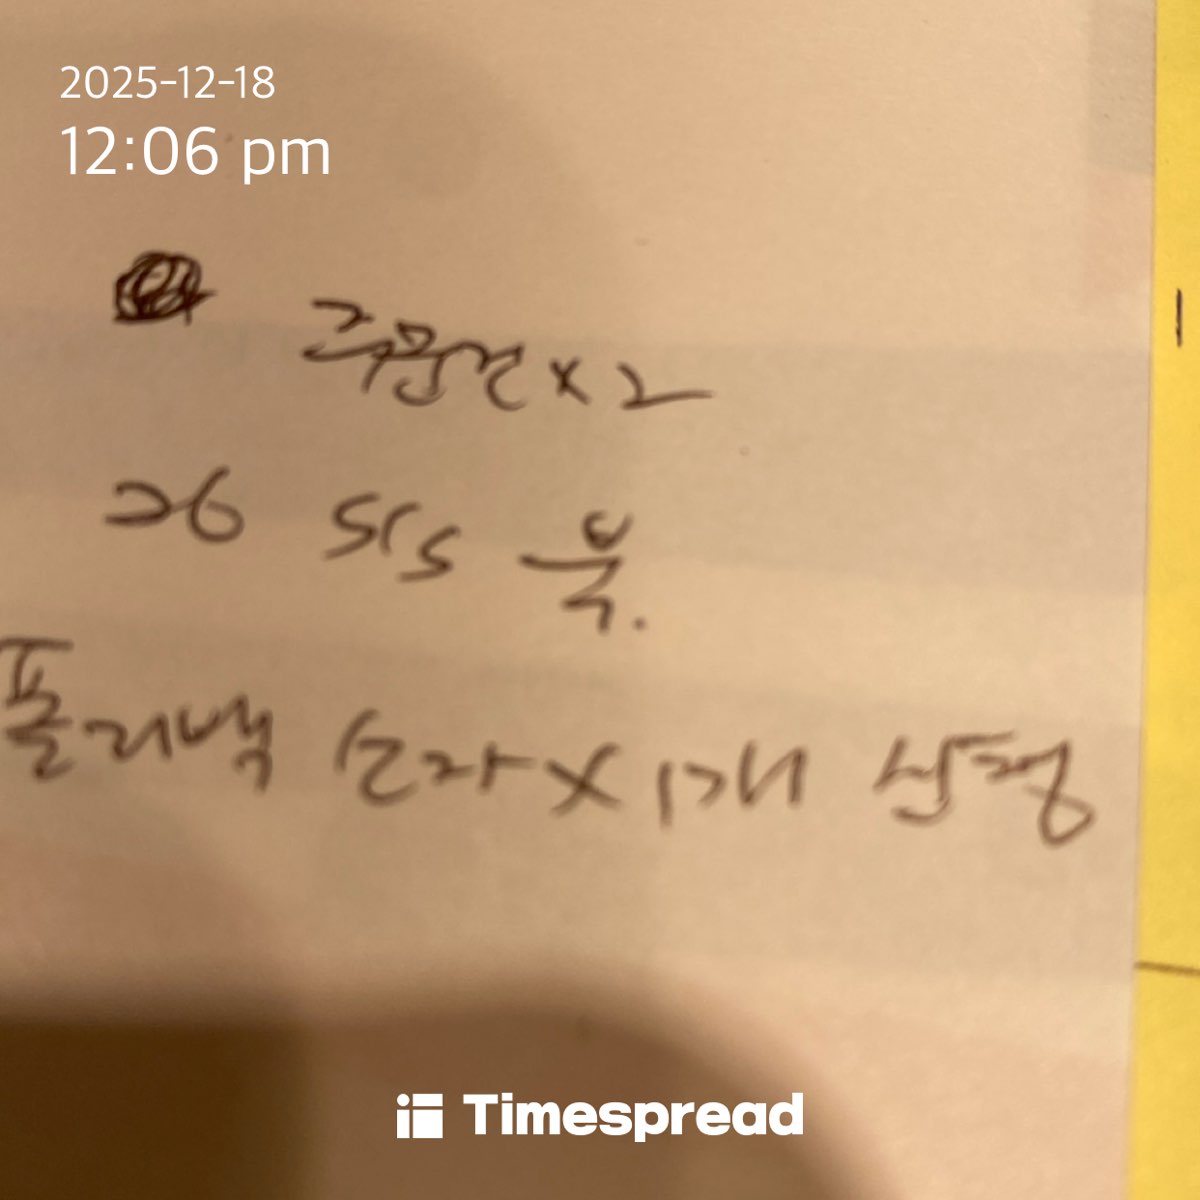 2025-12-18
12:06 pm
주문건 x 2
26 S/S 북.
폴리백 순라 x 1개 신정
Timespread